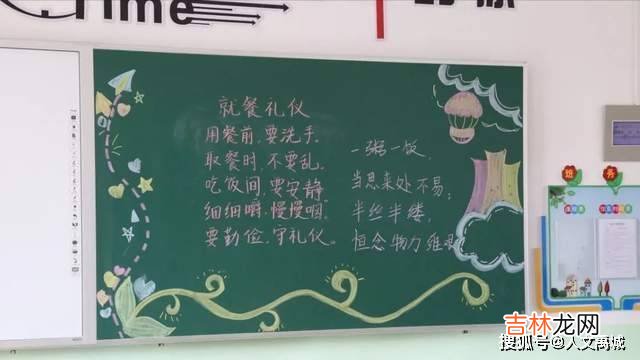 Time
就餐礼仪
用餐前,要洗手。
取餐时,不要乱。
吃饭间,要安静。
细细嚼,慢慢咽。
要勤俭,守礼仪。
一粥一饭,
当思来处不易;
半丝半缕,
恒念物力维艰
班务
吉林龙网
搜狐号@人文禹城